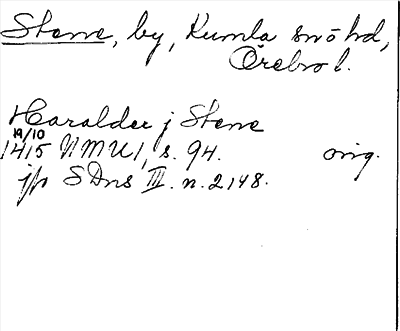 Stene, by, Kumla sn o hd,
Örebro l.
Haralder j Stene
19/10
1415 NMU 1, s. 94. orig.
jfr SDns III. n. 2148.